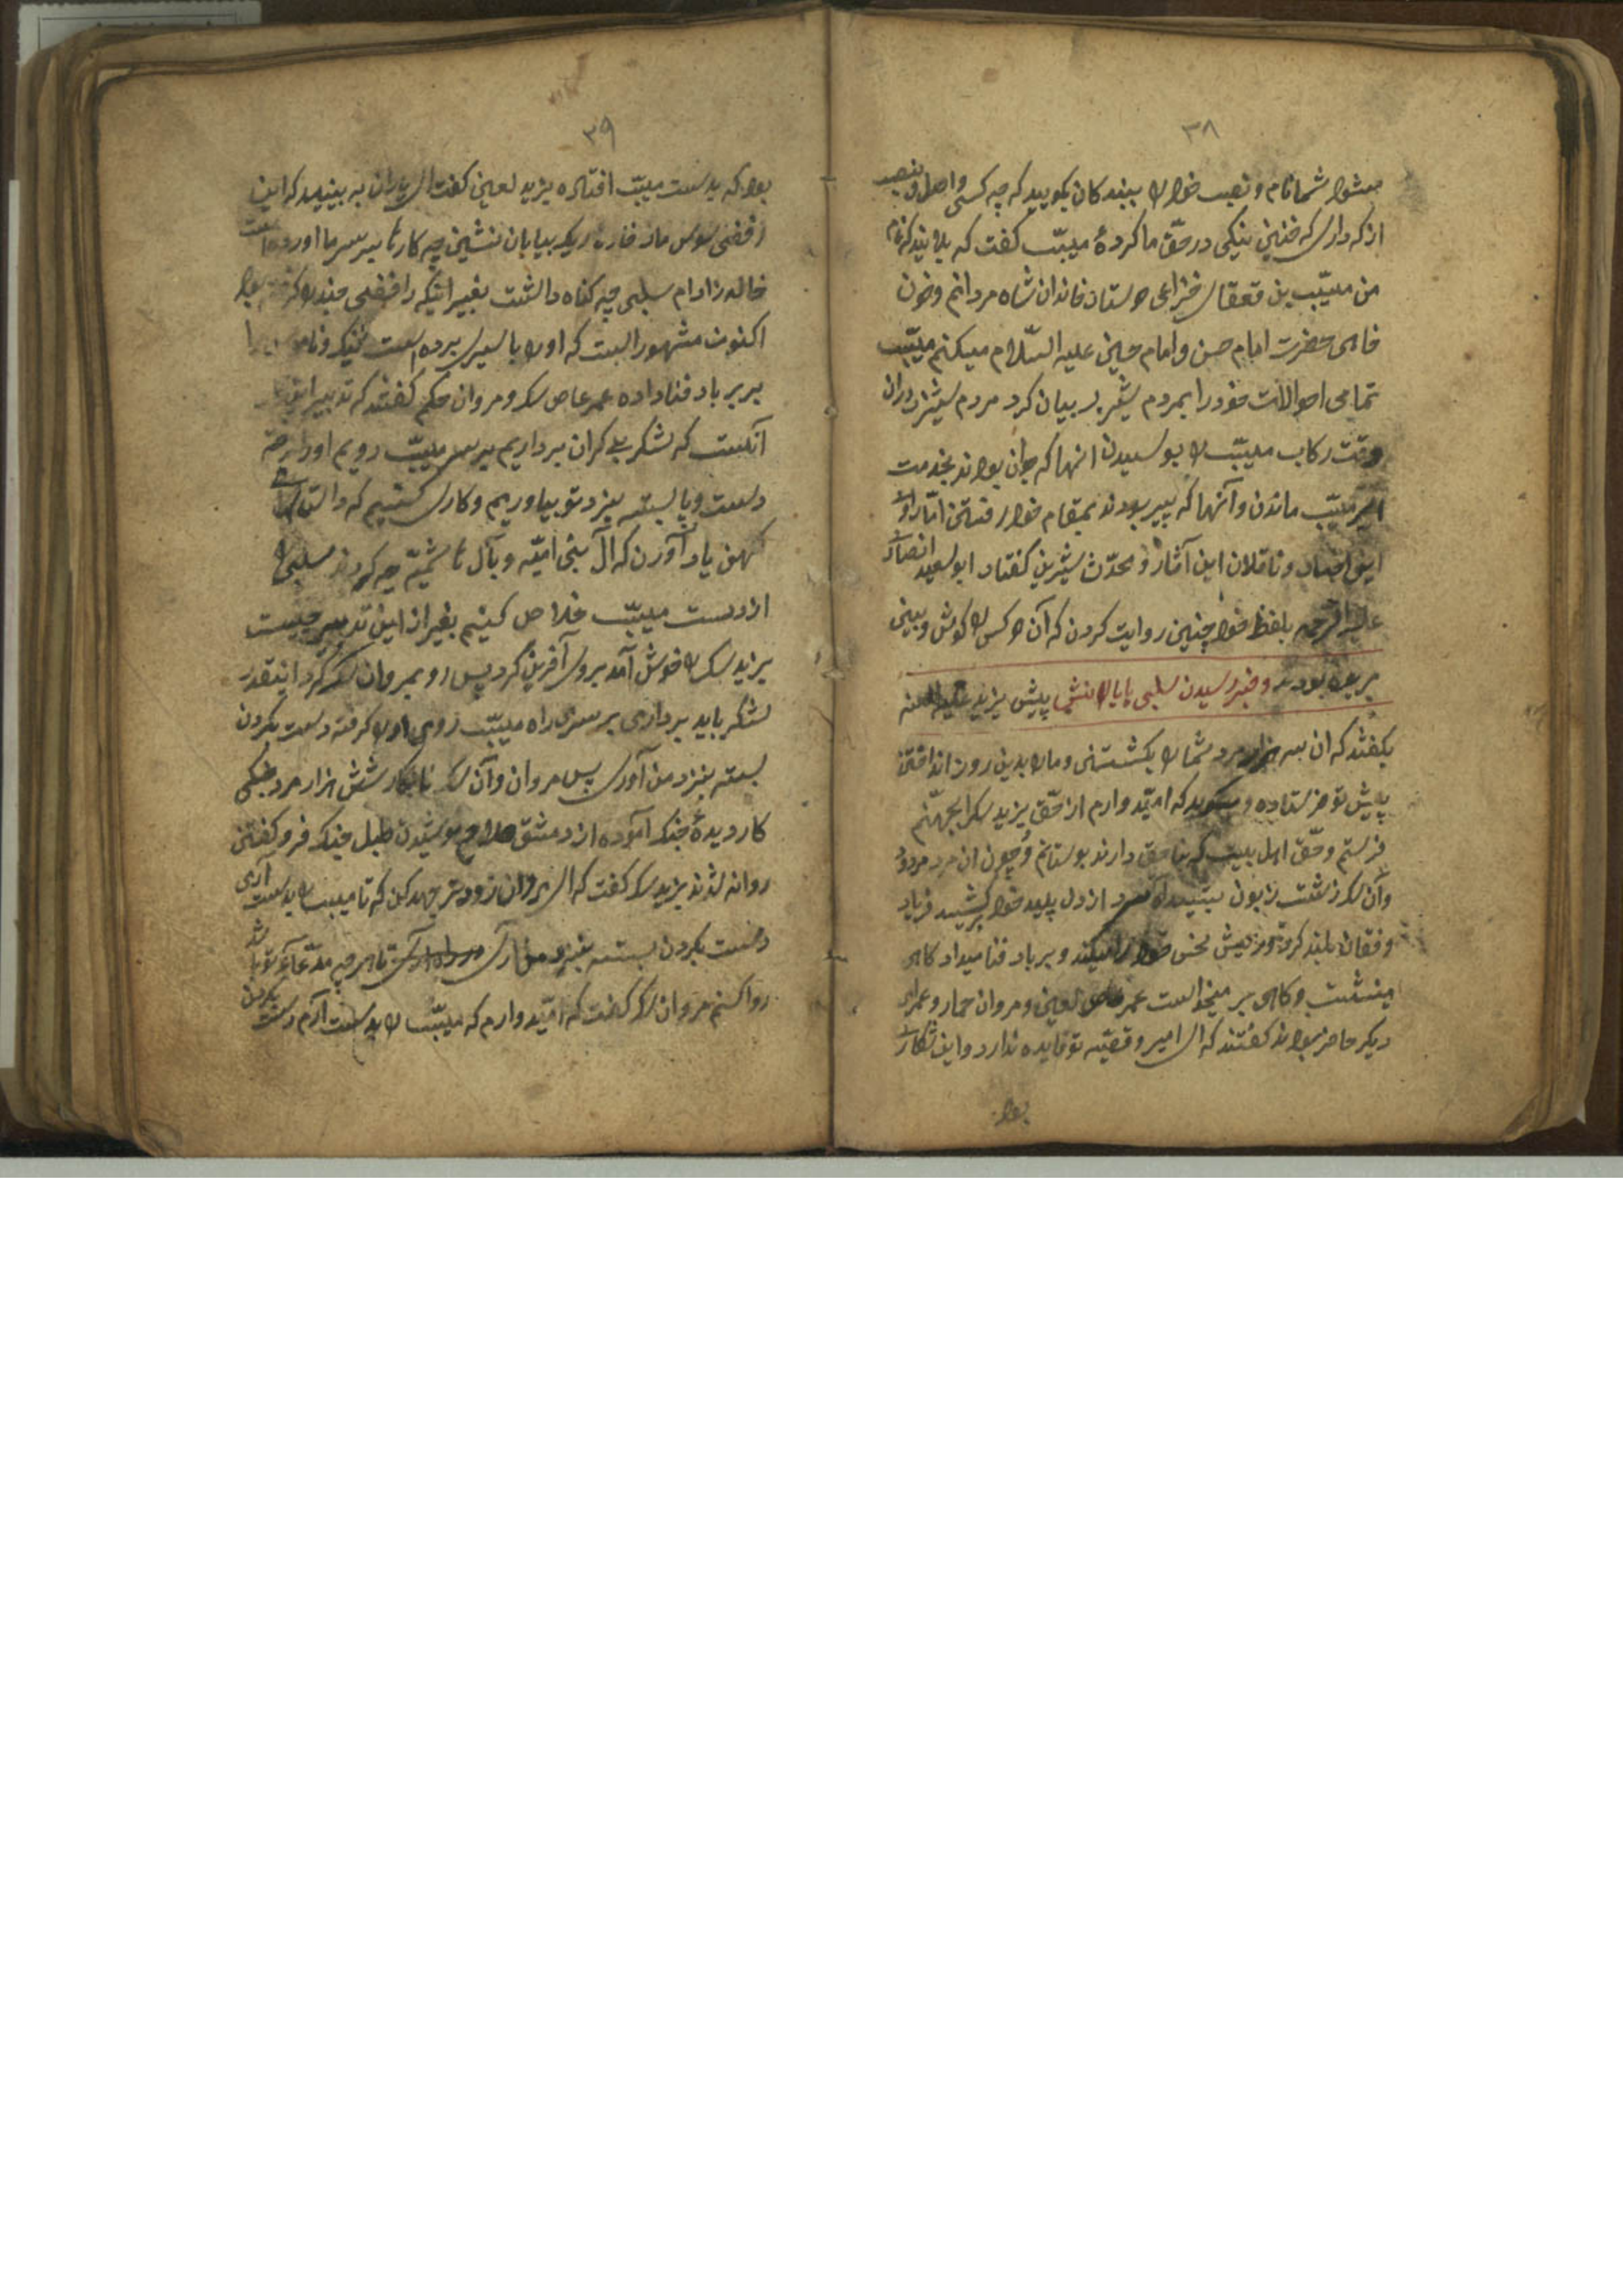 ۳۸
میشود شما نام و نصب خود را ببندکان بکویید که چه کسی و اصل و نصب
از که داری که چنین نیکی در حقّ ما کردهٔ مسیّب کفت که بدانید که نام
من مسیّب بن قعقاى خزاعى دوستار خاندان شاه مردانم و خون
خاهى حضرت امام حسن و امام حسین علیه السّلام میکنم مسیّب
تمامى احوالات خود را بمردم بیان کرد مردم در ان
وقت رکاب مسیّب را بوسیدن انها که جوان بودند بخدمت
امیر مسیّب ماندن و آنها که پیر بودند بمقام خود رفتن امّا راویان
این اخبار و ناقلان این آثار و محدّث شیرین کفتار ابو سعید انصارى
علیه الرحمه بلفظ خود چنین روایت کردن که آن دو کس را کوش و بینى
بریده بودند و خبر رسیدن سلبى پیش یزید علیه العنه
بکفتند که ان سه هزار مرد شما را بکشتنى و ما را بدین روز انداختن
پیش تو فرستاده و میکوید که امیّدوارم از حّق یزید سک را بجهنّم
فرستم و حّق اهل بیت که نا حق دارند بوستانم و چون ان مرد مردود
وآن سک زشت زبون بشنید آه سرد از دل پلید خود برکشید فریاد
و فقان بلند کرد و ریش نحس خود را میکند و بر باد فنا میداد کاهى
مینشت و کاهى بر میخواست عمر عاص لعین و مروان حمار و عمراى
دیکر حاضر بودند کفتند که اى امیر و قضیّه تو فایده ندارد و این
بود
۳۹
بود که بدست مسیّب افتاده یزید لعین کفت اى یاران به بینید که این
رفضى سوس مار خاره ریک بیابان نشین چه کارها بر سر ما اورده است
خاله زادام سلبى چه کناه داشت بغیر اینکه رافضى چند را کرفته بود
اکنون مشهور است که او را با سیرى برده است ننک و نامو
بر بر باد فنا داده عمر عاص سک و مروان حکم کفتند که تدبیر این
آنست که لشکر بى کران برداریم بر سر مسیّب رویم او را
دست و پا بسته بنزد تو بیاوریم و کارى کنیم که داستان
کهن یاد آورن که آل بنى امیّه و بآل هاشمیّه چه کردند سلبى را
از دست مسیّب خلاص کنیم بغیر از این تدبیر چیست
یزید سک را خوش آمد بر وى آفرین کرد پس رو بمروان سک کرد اینقدر
لشکر باید بردارى بر سرى راه مسیّب روى او را کرفته دست بکردن
بسته بنزد من آورى پس مروان وآن سک نابکار شش هزار مرد جنکى
کار دیدهٔ جنک آموده از دمشق سلاح پوشیدن طبل جنک فرو کفتن
روانه شدند یزید سک کفت که اى مروان زودتر جهد کن که تا مسیب را بدست آرى
دست بکردن بسته بنزد من آرى تا هر چه مدّعاى تو باشد
روا کنم مروان سک کفت که امّیدوارم که مسیّب را بدست آرم دست بکردن